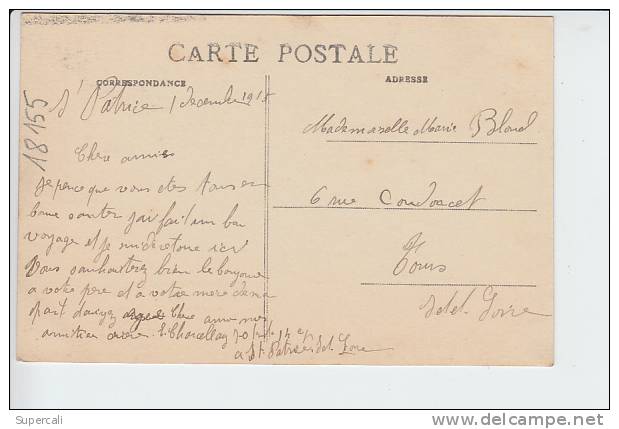 CARTE POSTALE
CORRESPONDANCE
ADRESSE
18155
St Patrice 1 decembre 1915
Chere amie
Je pence que vous etes tous en
bone santer jai fait un bon
voyage et je
Vous souhaiterez bien le bonjour
a votre pere et a votre mere de ma
part Chere amie mes
amitier
a St Patrice Idel Loire
Mademaselle Marie Blond
6 rue Condorcet
Tours
Idel Loire
Supercali
www.delcampe.net